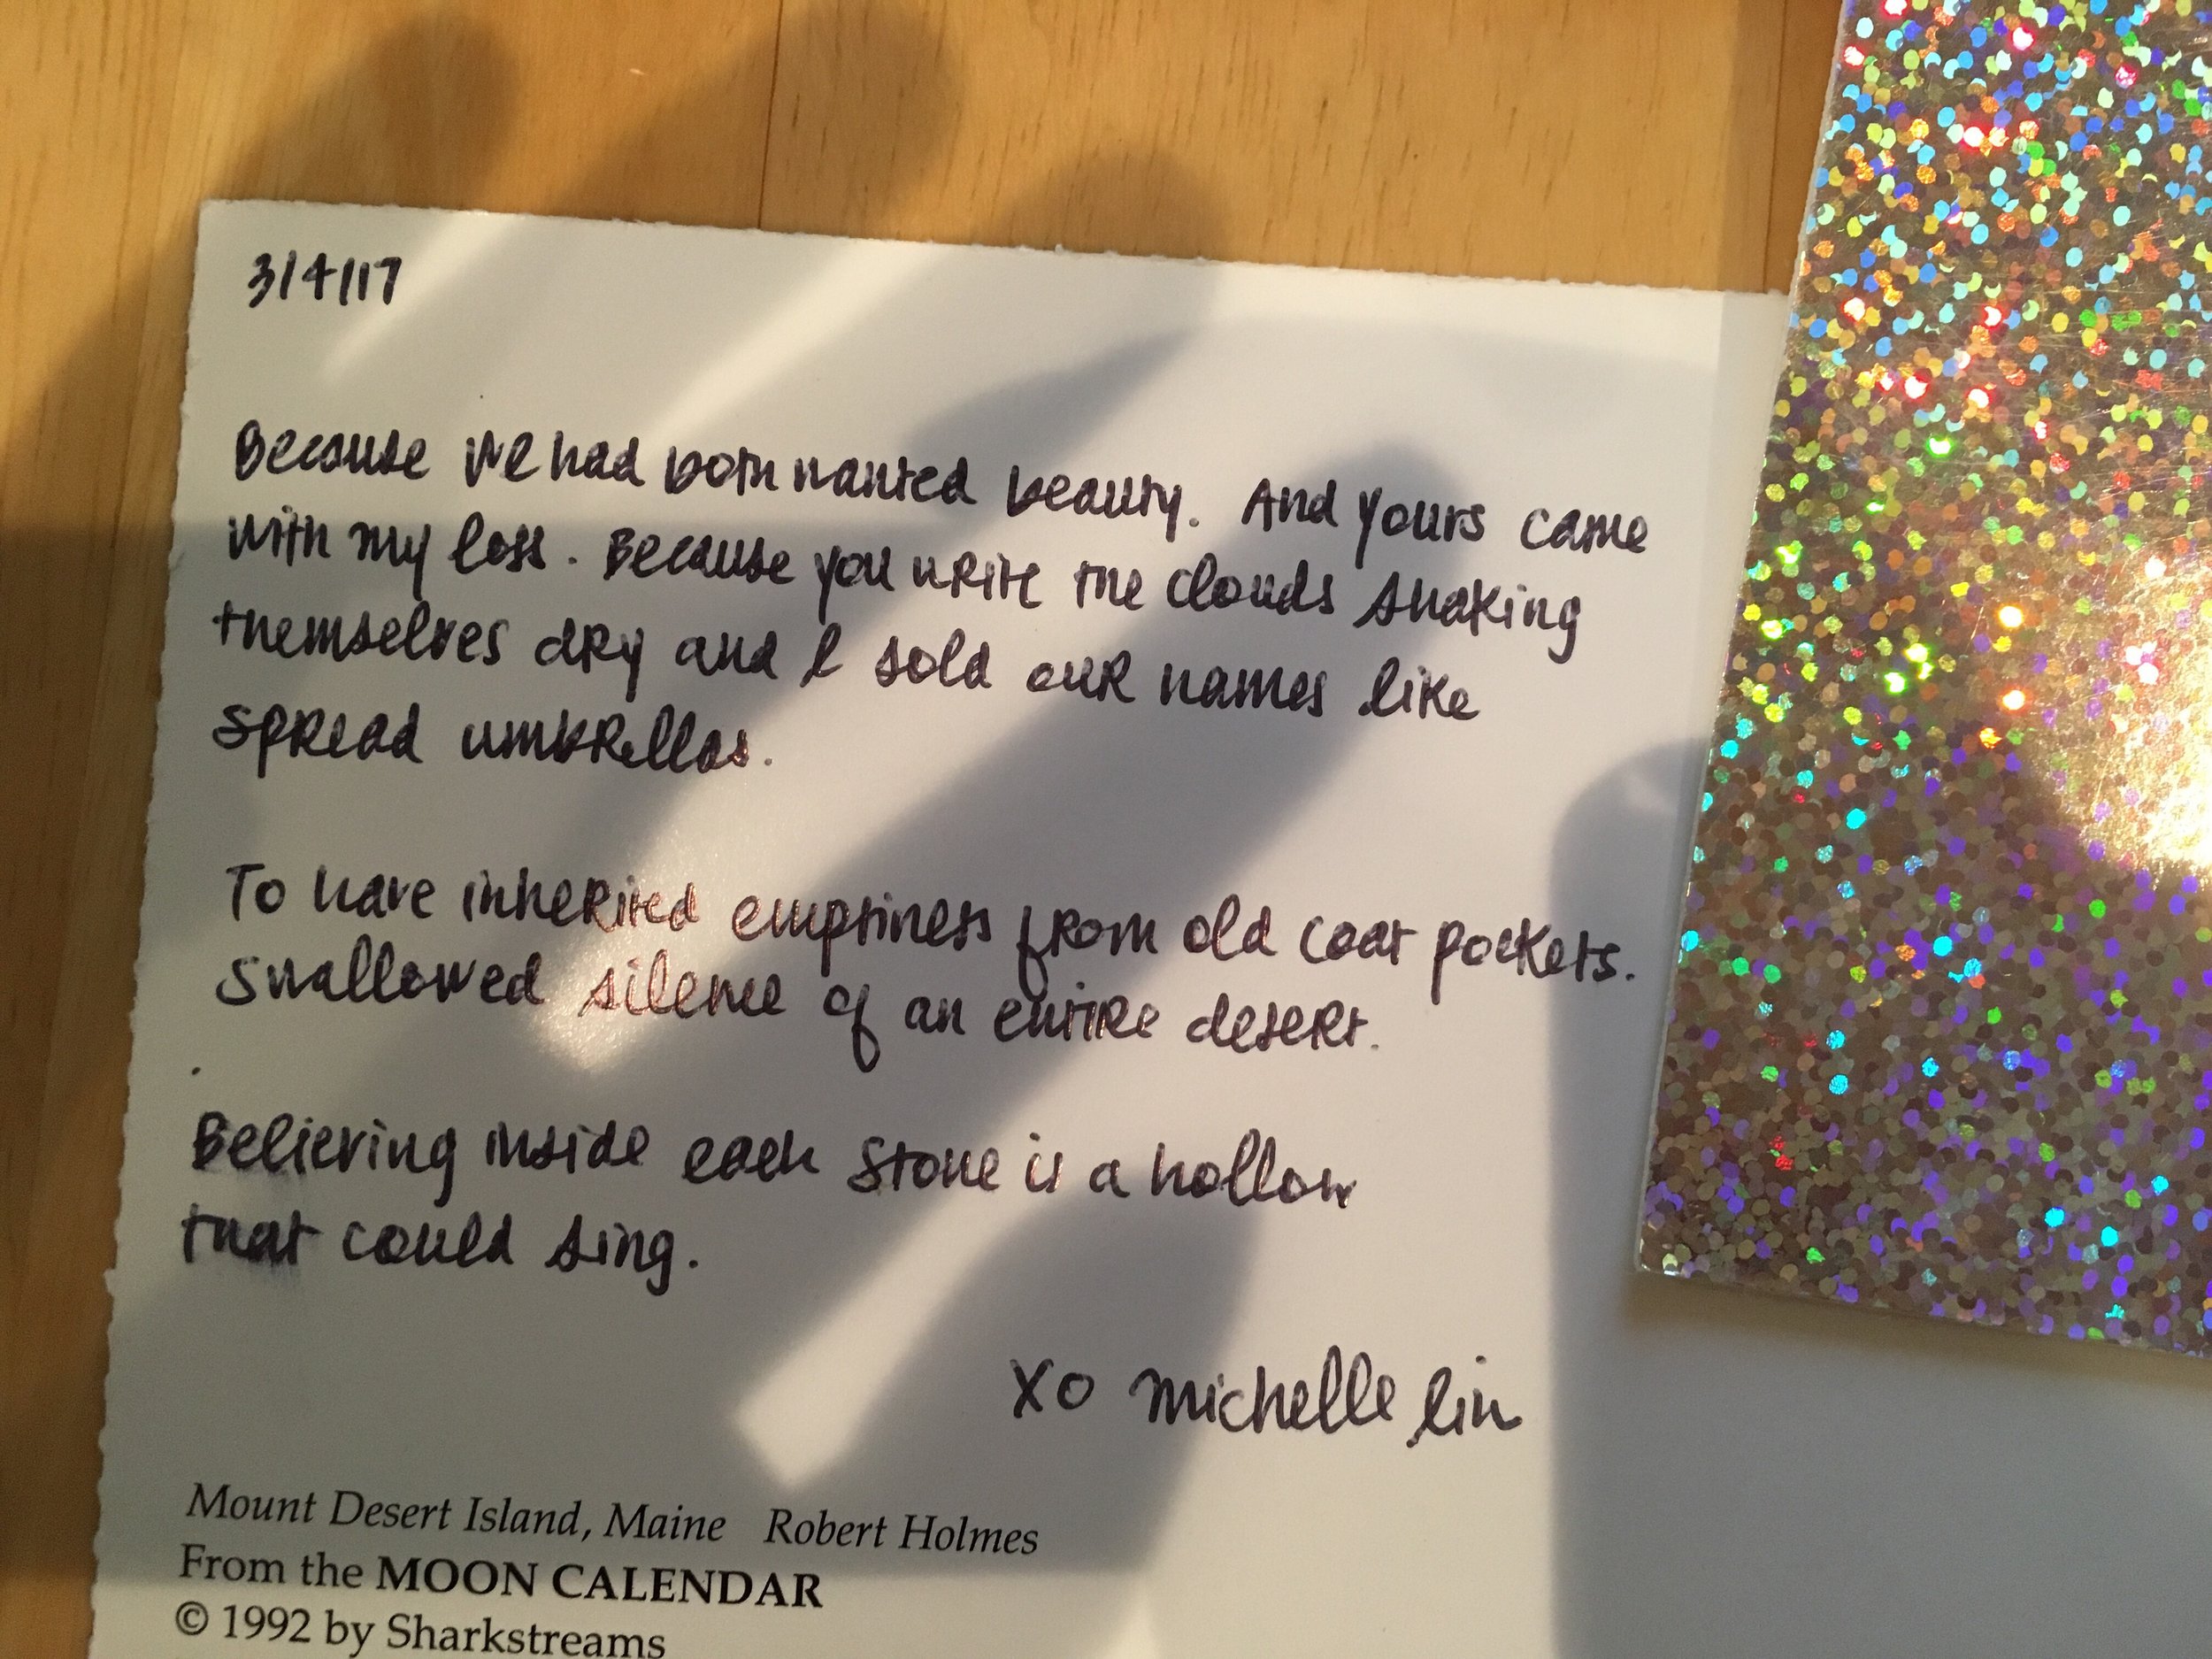 3/4/17
Because we had both wanted beauty. And yours came
with my loss. Because you write the clouds shaking
themselves dry and I sold our names like
spread umbrellas.
To have inherited emptiness from old coat pockets.
Swallowed silence of an entire desert.
Believing inside each stone is a hollow
that could sing.
XO michelle lin
Mount Desert Island, Maine Robert Holmes
From the MOON CALENDAR
© 1992 by Sharkstreams